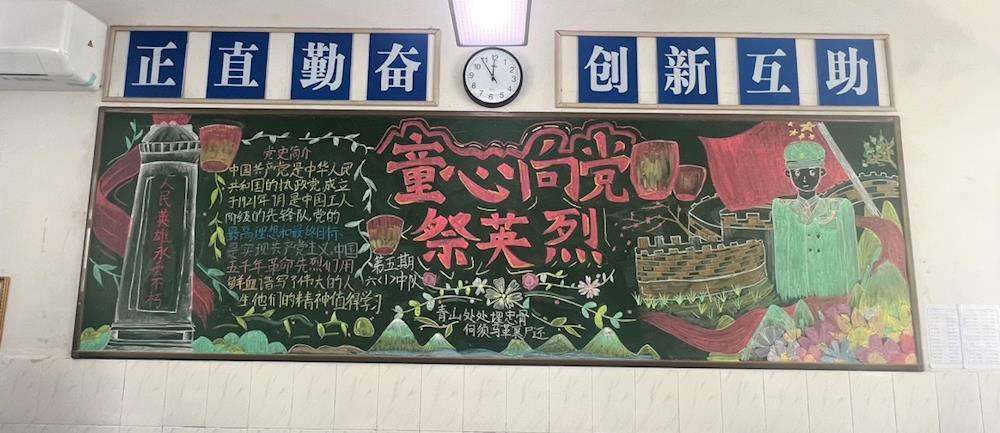 正直勤奋
创新互助
人民英雄永垂不朽
党史简介
中国共产党是中华人民
共和国的执政党,成立
于1921年7月是中国工人
阶级的先锋队,党的
最高理想和最终目标
是实现共产主义,中国
五千年革命先烈们用
鲜血谱写了伟大的人
生他们的精神值得学习
童心向党
祭英烈
第五期
六<1>中队
青山处处埋忠骨
何须马革裹尸还